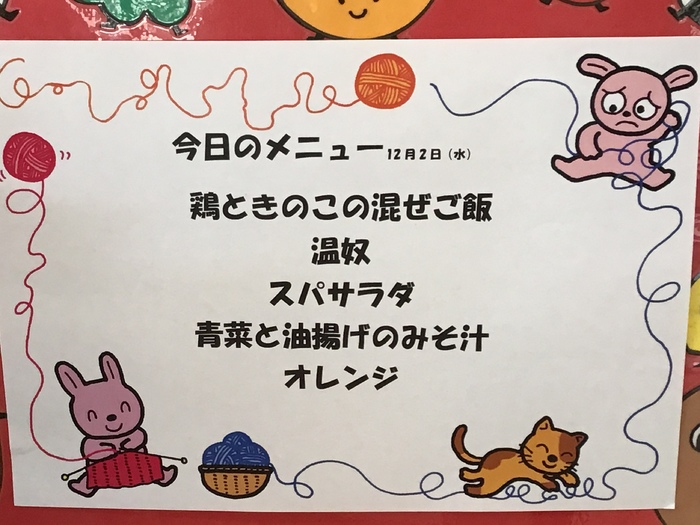 今日のメニュー 12月2日(水)
鶏ときのこの混ぜご飯
温奴
スパサラダ
青菜と油揚げのみそ汁
オレンジ